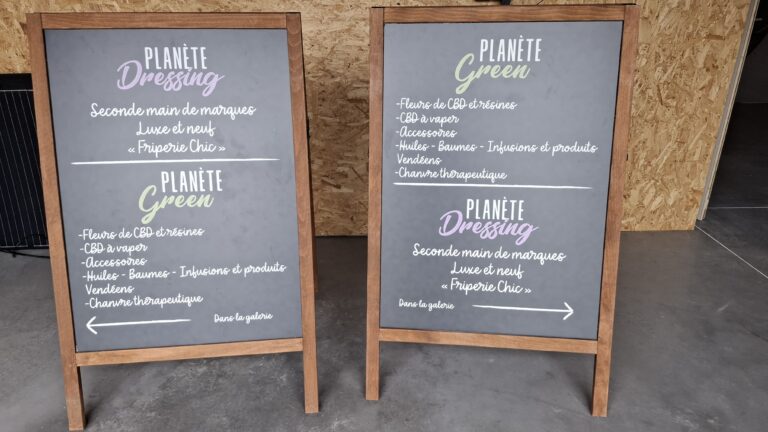 PLANÈTE
Dressing
Seconde main de marques
Luxe et neuf
« Friperie Chic »
PLANÈTE
Green
-Fleurs de CBD et résines
-CBD à vaper
-Accessoires
-Huiles - Baumes - Infusions et produits
Vendéens
-Chanvre thérapeutique
Dans la galerie
PLANÈTE
Green
-Fleurs de CBD et résines
-CBD à vaper
-Accessoires
-Huiles - Baumes - Infusions et produits
Vendéens
-Chanvre thérapeutique
PLANÈTE
Dressing
Seconde main de marques
Luxe et neuf
« Friperie Chic »
Dans la galerie